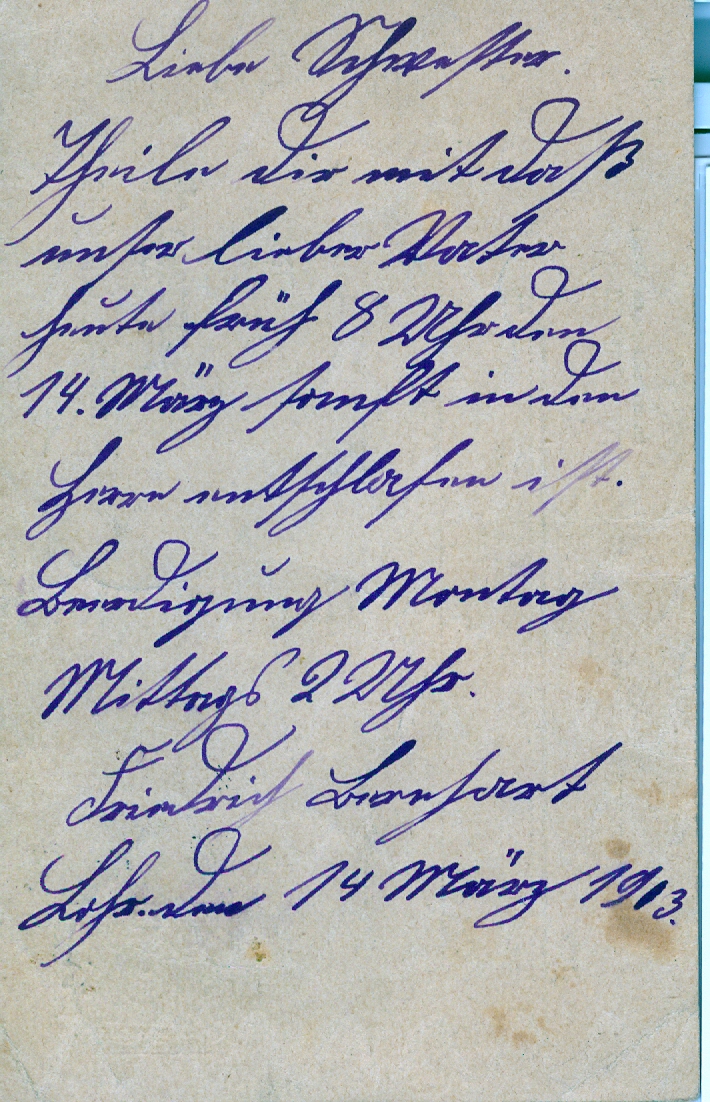 Liebe Schwester.
Theile dir mit daß
unser lieber Vater
heute früh 8 Uhr den
14. März sanft in den
Herrn entschlafen ist.
Beerdigung Montag
Mittags 2 Uhr.
Friedrich Bernhart
Lohr. den 14 März 1913.